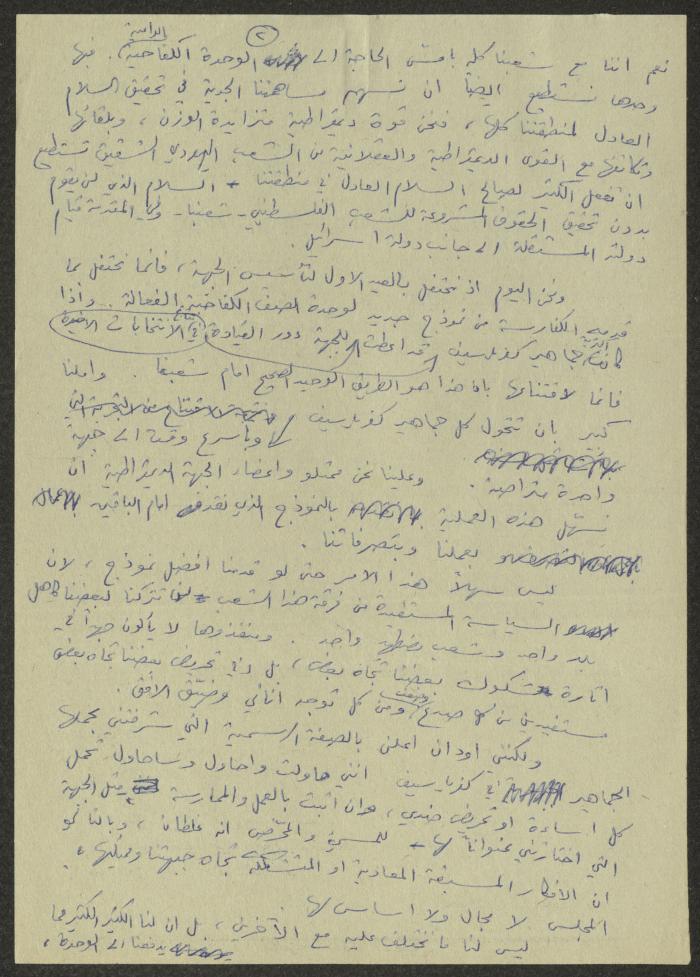 ٢
نعم اننا مع شعبنا كله بامسّ الحاجة الى الوحدة الكفاحية الدرامية. فبها
وحدها نستطيع ايضاً ان نسهم مساهمتنا الجدية في تحقيق السلام
العادل لمنطقتنا كلها، فنحن قوة ديمقراطية متزايدة الوزن، وبلقائها
وتكاتفها مع القوى الديمقراطية والعقلانية من الشعب اليهودي الشقيق تستطيع
ان تفعل الكثير لصالح السلام العادل في منطقتنا - السلام الذي لن يقوم
بدون تحقيق الحقوق المشروعة للشعب الفلسطيني - شعبنا - وفي المقدمة قيام
دولته المستقلة الى جانب دولة اسرائيل.
ونحن اليوم اذ نحتفل بالعيد الاول لتأسيس الجبهة، فانما نحتفل بما
قدمته الكفارسة من نموذج جديد لوحدة الصف الكفاحية الفعالة. واذا
كانت جماهير كفرياسيف قد اعطت للجبهة دور القيادة في الانتخابات الاخيرة
فانما لاقتناعها بان هذا هو الطريق الوحيد الصحيح امام شعبنا. واملنا
كبير بان تتحول كل جماهير كفرياسيف وباسرع وقت الى جبهة
واحدة متراصة. وعلينا نحن ممثلو واعضاء الجبهة الديمقراطية ان
نسهّل هذه العملية بالنموذج الذي نقدمه امام الباقين
بعملنا وبتصرفاتنا.
ليس سهلاً هذا الامر حتى لو قدمنا افضل نموذج، لان
السياسة المستفيدة من فرقة هذا الشعب لن تتركنا لبعضنا كأهل
بلد واحد وشعب مضطهد واحد. ومنفذوها لا يألون جهداً في
اثارة شكوك بعضنا تجاه بعض، بل وفي تحريض بعضنا تجاه بعض
مستفيدين من كل صدع ومن كل توجه اناني وضيّق الافق.
ولكنني اود ان اعلن بالصفة الرسمية التي شرفتني بحملها
الجماهير في كفرياسيف انني حاولت واحاول وسأحاول تحمل
كل اساءة او تحريض ضدي، وان اثبت بالعمل والممارسة مثل الجبهة
التي اختارتني عنواناً لها - للمسيء والمحرّض انه غلطان، وبالتالي
ان الافكار المسبقة المعادية او المتشككة تجاه جبهتنا وممثليها،
المجلس لا مجال ولا اساس لها.
ليس لنا ما نختلف عليه مع الآخرين، بل ان لنا الكثير الكثير مما
يدفعنا الى الوحدة،